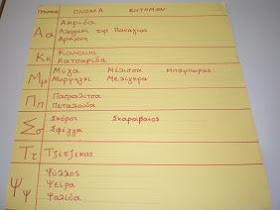 ΟΝΟΜΑ ΕΝΤΟΜΩΝ
Αα
Ακρίδα
Αλογάκι της Παναγίας
Αράχνη
Κκ
Κουνούπι
Κατσαρίδα
Μμ
Μύγα Μέλισσα Μπάμπουρας
Μυρμήγκι Μελίγκρα
Ππ
Πασχαλίτσα
Πεταλούδα
Σσ
Σκόρος Σκαραβαίος
Ττ
Τζίτζικας
Ψψ
Ψύλλος
Ψείρα
Ψαλίδα